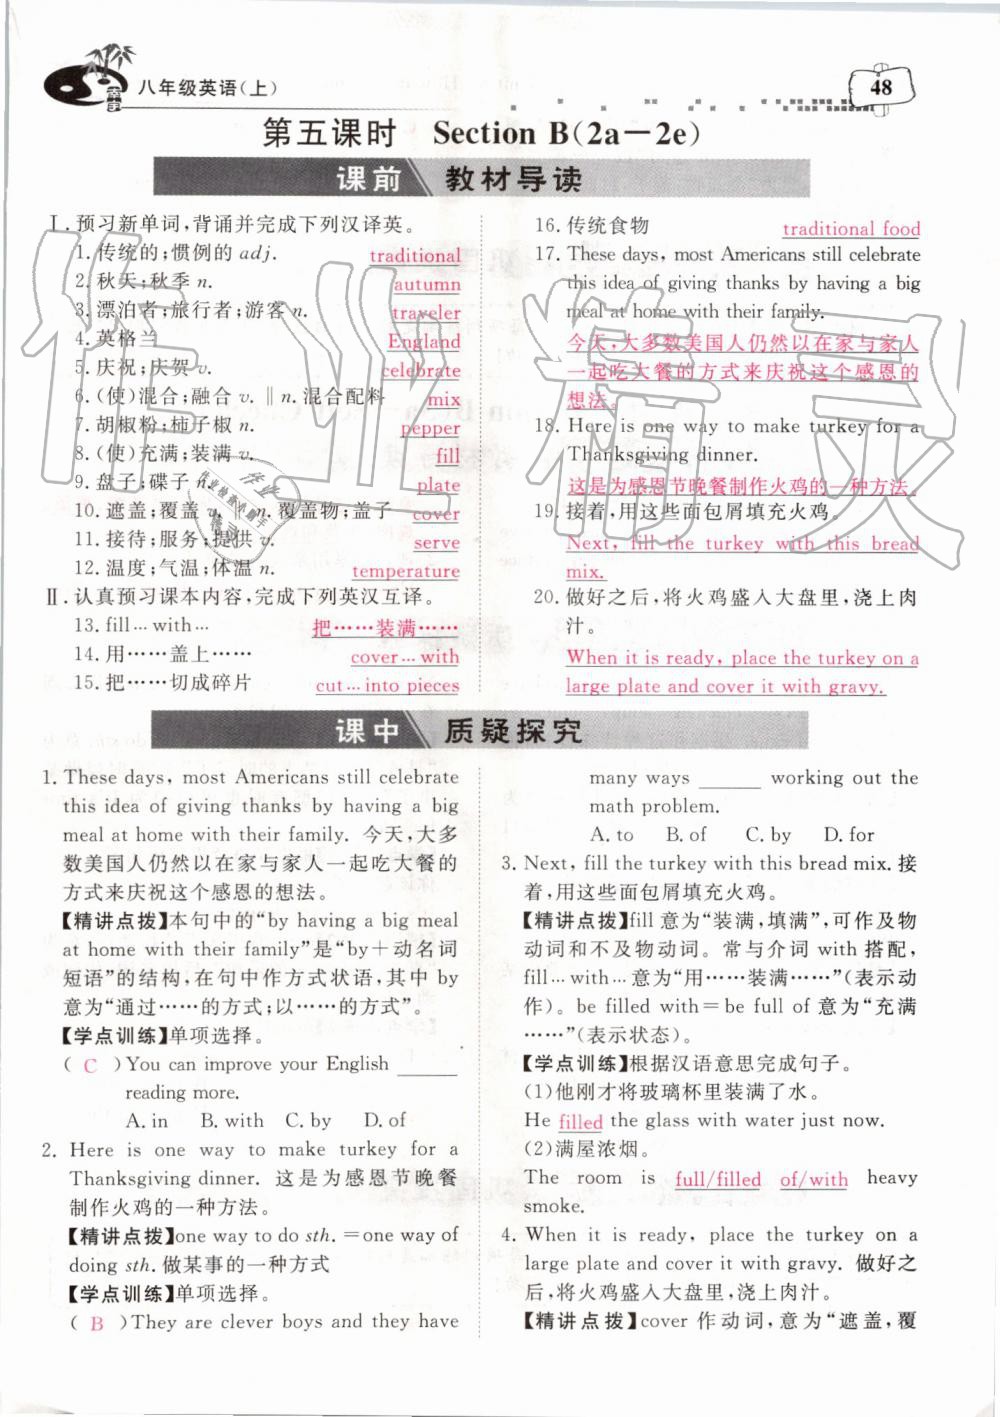 八年级英语(上)
48
第五课时 Section B(2a－2e)
课前 教材导读
Ⅰ.预习新单词,背诵并完成下列汉译英。
1.传统的;惯例的 adj. traditional
2.秋天;秋季 n. autumn
3.漂泊者;旅行者;游客 n. traveler
4.英格兰 England
5.庆祝;庆贺 v. celebrate
6.(使)混合;融合 v. ‖n.混合配料 mix
7.胡椒粉;柿子椒 n. pepper
8.(使)充满;装满 v. fill
9.盘子;碟子 n. plate
10.遮盖;覆盖 v. ‖n.覆盖物;盖子 cover
11.接待;服务;提供 v. serve
12.温度;气温;体温 n. temperature
Ⅱ.认真预习课本内容,完成下列英汉互译。
13. fill … with … 把……装满……
14.用……盖上…… cover … with
15.把……切成碎片 cut … into pieces
16.传统食物 traditional food
17. These days, most Americans still celebrate
this idea of giving thanks by having a big
meal at home with their family.
今天,大多数美国人仍然以在家与家人
一起吃大餐的方式来庆祝这个感恩的
想法。
18. Here is one way to make turkey for a
Thanksgiving dinner.
这是为感恩节晚餐制作火鸡的一种方法。
19.接着,用这些面包屑填充火鸡。
Next, fill the turkey with this bread
mix.
20.做好之后,将火鸡盛入大盘里,浇上肉
汁。
When it is ready, place the turkey on a
large plate and cover it with gravy.
课中 质疑探究
1. These days, most Americans still celebrate
this idea of giving thanks by having a big
meal at home with their family. 今天,大多
数美国人仍然以在家与家人一起吃大餐的
方式来庆祝这个感恩的想法。
【精讲点拨】本句中的“by having a big meal
at home with their family”是“by＋动名词
短语”的结构,在句中作方式状语,其中 by
意为“通过……的方式;以……的方式”。
【学点训练】单项选择。
( C )You can improve your English ______
reading more.
A. in B. with C. by D. of
2. Here is one way to make turkey for a
Thanksgiving dinner. 这是为感恩节晚餐
制作火鸡的一种方法。
【精讲点拨】one way to do sth. ＝one way of
doing sth.做某事的一种方式
【学点训练】单项选择。
( B )They are clever boys and they have
many ways ______ working out the
math problem.
A. to B. of C. by D. for
3. Next, fill the turkey with this bread mix. 接
着,用这些面包屑填充火鸡。
【精讲点拨】fill 意为“装满,填满”,可作及物
动词和不及物动词。常与介词 with 搭配,
fill … with … 意为“用……装满……”(表示动
作)。be filled with＝be full of 意为“充满
……”(表示状态)。
【学点训练】根据汉语意思完成句子。
(1)他刚才将玻璃杯里装满了水。
He filled the glass with water just now.
(2)满屋浓烟。
The room is full/filled of/with heavy
smoke.
4. When it is ready, place the turkey on a
large plate and cover it with gravy. 做好之
后,将火鸡盛入大盘里,浇上肉汁。
【精讲点拨】cover 作动词,意为“遮盖,覆
作业精灵